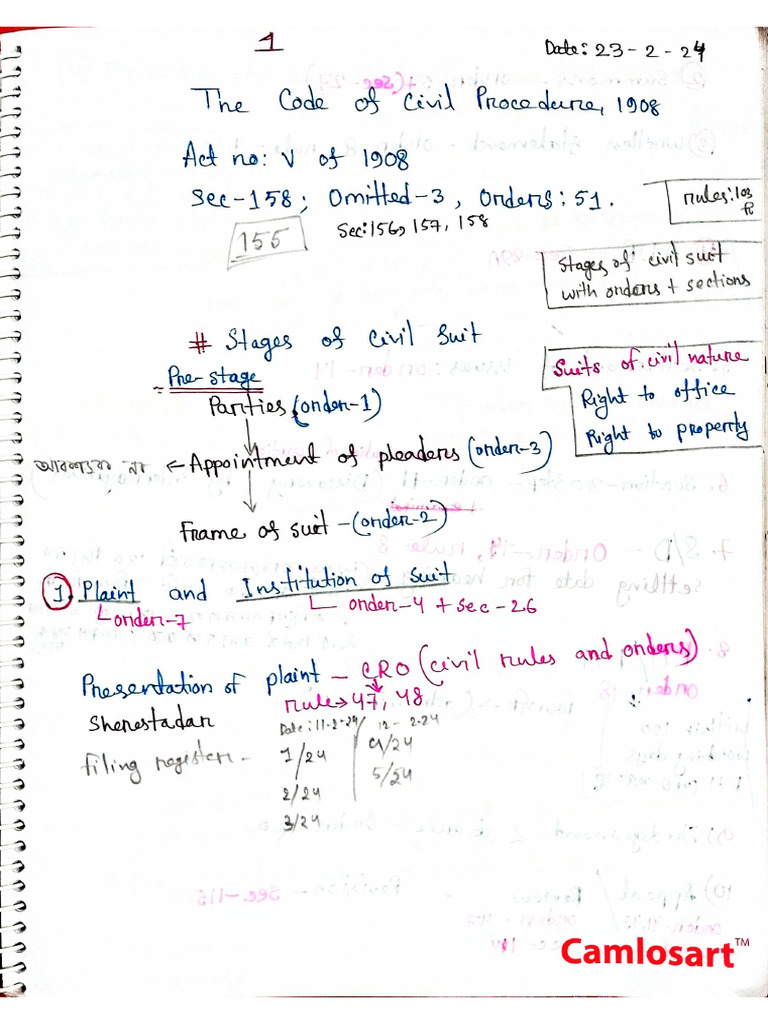 1
Date: 23-2-24
The Code of Civil Procedure, 1908
Act no: V of 1908
Sec-158; Omitted-3, Orders: 51.
rules: 103
Sec: 156, 157, 158
155
Stages of civil suit
with orders + sections
# Stages of Civil Suit
Pre-stage
Suits of civil nature
Right to office
Right to property
Parties (order-1)
← Appointment of pleaders (order-3)
Frame of suit - (order-2)
1. Plaint and Institution of suit
order-7
order-4 + sec-26
Presentation of plaint - CRO (civil rules and orders)
rule → 47, 48
Sherestadar
Date: 11-2-24 / 12-2-24
filing register -
1/24
4/24
2/24
5/24
3/24
Camlosart™